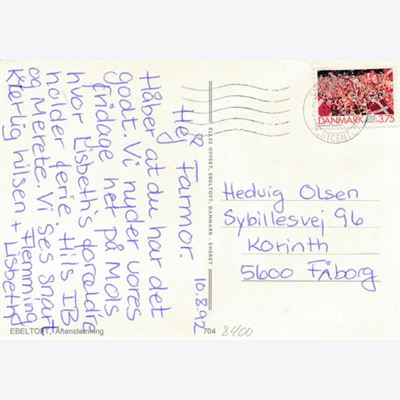 Hej Farmor. 10.8.92
Håber at du har det
godt. Vi nyder vores
fridage her på Mols
hvor Lisbeth's forældre
holder ferie. Hils IB
og Merete. Vi ses snart
Kærlig hilsen Flemming
+ Lisbeth
EBELTOFT, Aftenstemning
704
8400
ELLES OFFSET, EBELTOFT, DANMARK - ENERET
DANMARK 3.75
Hedvig Olsen
Sybillesvej 96
Korinth
5600 Fåborg